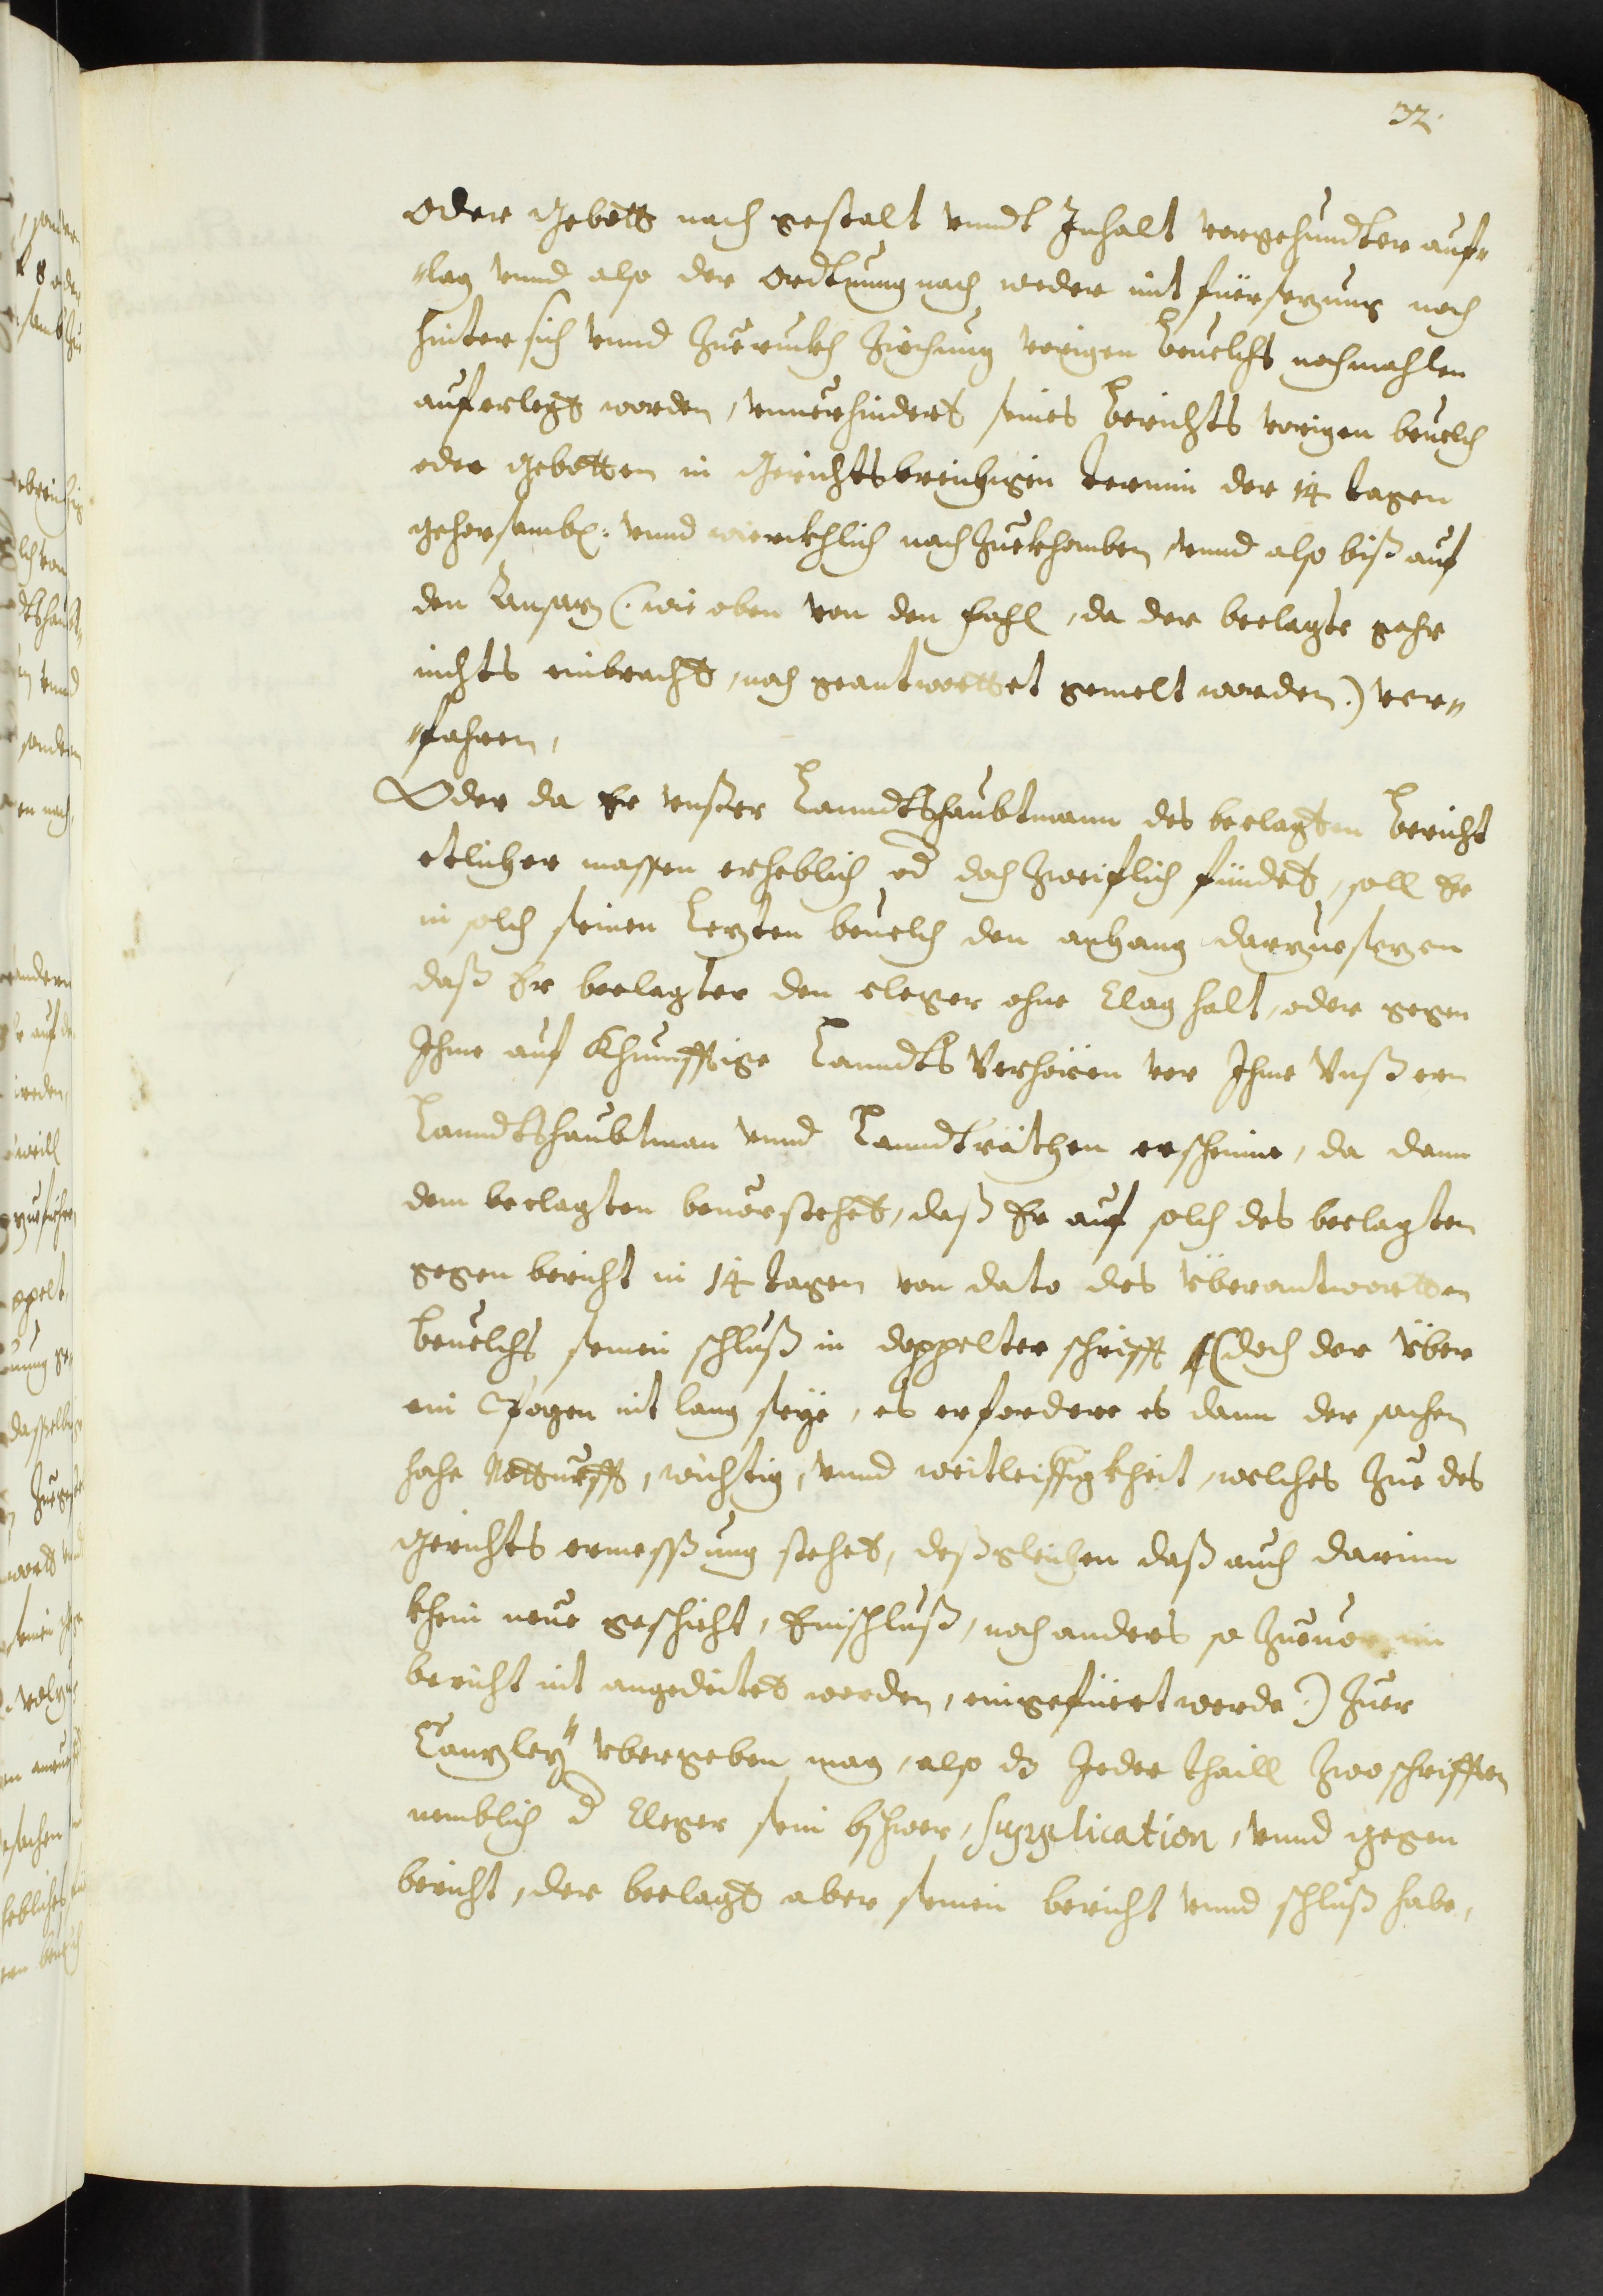 32.
oder Gebott nach gestalt vnndt Inhalt vorgehundter auf„
„lag vnnd also der Ordtnung nach weder mit fürsezung noch
hinter sich vnnd Zuerukh Ziechung vorigen beuelchs nochmahlen
auferlegt worden, vnuerhindert seines berichts vorigen beuelch
oder gebotten in gerichtsbreichigen termin der 14 tagen
gehorsambl: vnnd wierckhlich nachZuekhomben, vnnd also biß auf
den Ansaz (: wie oben von den fahl, da der beclagte gahr
nichts einbracht, noch geantworttet gemelt worden:) ver„
„fahren,
Oder da Er vnßer Lanndtshaubtmann des beclagten bericht
etlicher massen erheblich od doch Zweiflich fündet, soll Er
in solch seinen Lezten beuelch den anhang darzuesezen
daß Er beclagter den cleger ohne Clag halt, oder gegen
Ihme auf Khunfftige Lanndts Verhören vor Ihme Vnßern
Lanndtshaubtman vnnd Lanndträthen erscheine, da dann
dem beclagten beuorstehet, daß Er auf solch des beclagten
gegen bericht in 14 tagen von dato des überantwortten
beuelchs seinen schluß in doppelter schrifft (doch der über
ein Pogen nit lang seye, es erfordere es dann der sachen
hohe Notturfft, wichtig, vnnd weitleiffigkheit, welches Zue des
gerichts ermessung stehet, deßgleichen daß auch darinn
khein neue geschicht, Einschluß, noch anders so Zueuor im
bericht nit angedeitet worden, eingefüert werde) Zuer
Canzley vbergeben mag, also dz Jeder thaill Zwo schrifften
nemblich d Cleger sein bschwer, Supplication, vnnd gegen
bericht, der beclagt aber seinen bericht vnnd schluß habe,